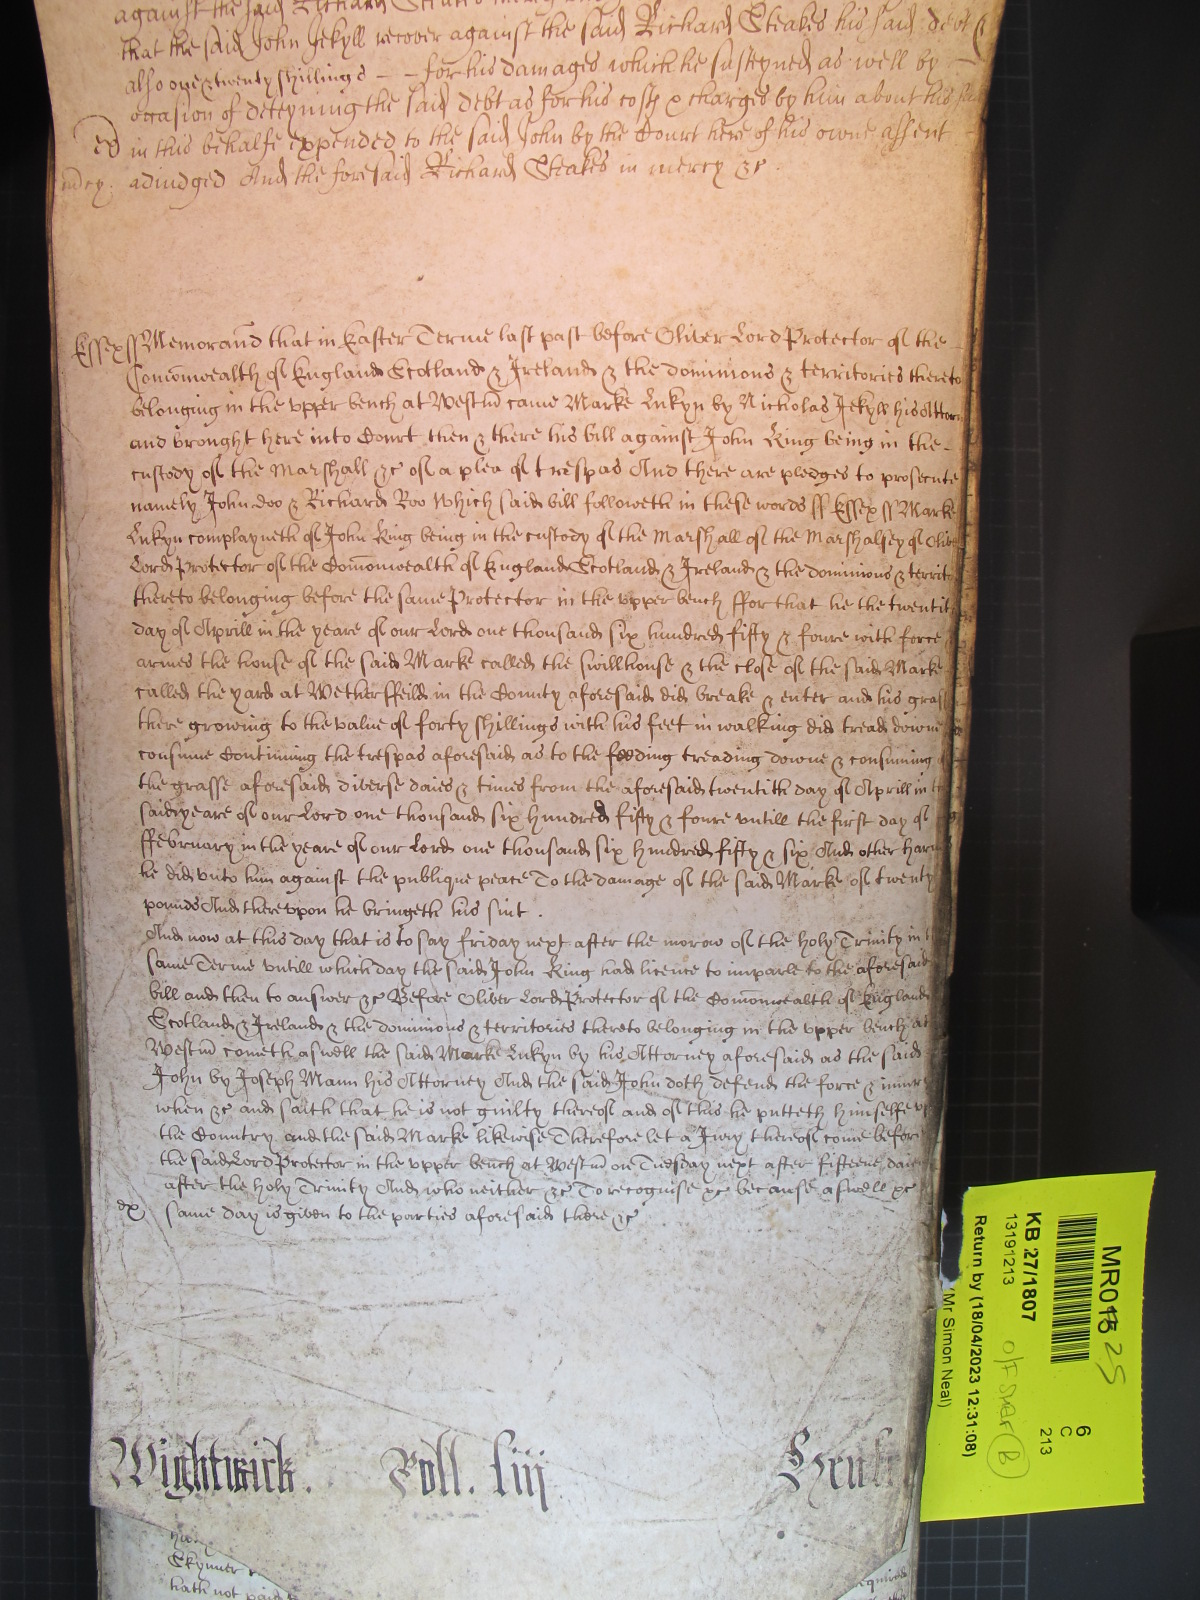 against the said Richard Steakes
that the said John Jekyll recover against the said Richard Steakes his said debt
also one & twenty shillings - - for his damages which he susteyned as well by
occasion of deteyning the said debt as for his costs & charges by him about his
in this behalfe expended to the said John by the Court here of his owne assent
mercy. adiudged And the foresaid Richard Steakes in mercy &c.
Essex ss Memorand that in Easter Terme last past before Oliver Lord Protector of the
Comonwealth of England Scotland & Ireland & the dominions & territories thereto
belonging in the upper bench at Westm came Marke Lukyn by Nicholas Jekyll his Attor
and brought here into Court then & there his bill against John King being in the
custody of the Marshall &c of a plea of trespas And there are pledges to prosecute
namely John Doo & Richard Roo Which said bill followeth in these words ss Essex ss Marke
Lukyn complayneth of John King being in the custody of the Marshall of the Marshalsey of Oliv
Lord Protector of the Comonwealth of England Scotland & Ireland & the dominions & territ
thereto belonging before the same Protector in the upper bench ffor that he the twentit
day of Aprill in the yeare of our Lord one thousand six hundred fifty & foure with force
armes the house of the said Marke called the swillhouse & the close of the said Marke
called the yard at Wethersfeild in the County aforesaid did breake & enter and his gras
there growing to the value of forty shillings with his feet in walking did tread downe
consume Continuing the trespas aforesaid as to the feeding treading downe & consuming
the grasse aforesaid diverse daies & times from the aforesaid twentith day of Aprill in
said yeare of our Lord one thousand six hundred fifty & foure untill the first day of
ffebruary in the yeare of our Lord one thousand six hundred fifty & six And other harm
he did unto him against the publique peace To the damage of the said Marke of twenty
pounds And thereupon he bringeth his suit .
And now at this day that is to say friday next after the morow of the holy Trinity in
same Terme untill which day the said John King had licence to imparle to the aforesaid
bill and then to answer &c Before Oliver Lord Protector of the Comonwealth of England
Scotland & Ireland & the dominions & territories thereto belonging in the upper bench at
Westm cometh aswell the said Marke Lukyn by his Attorney aforesaid as the said
John by Joseph Mann his Attorney And the said John doth defend the force & iniur
when &c and saith that he is not guilty thereof and of this he putteth himselfe up
the Country and the said Marke likewise Therefore let a Jury thereof come before
the said Lord Protector in the upper bench at Westm on Tuesday next after fifteene daies
after the holy Trinity And who neither &c To recognise &c because aswell &c
same day is given to the parties aforesaid there &c
Wightwick. Roll. liij
Skynner
hath not paid
require
MR015 25
6
C
213
KB 27/1807
13191213
O/F SPAR B
Return by (18/04/2023 12:31:08)
(Mr Simon Neal)